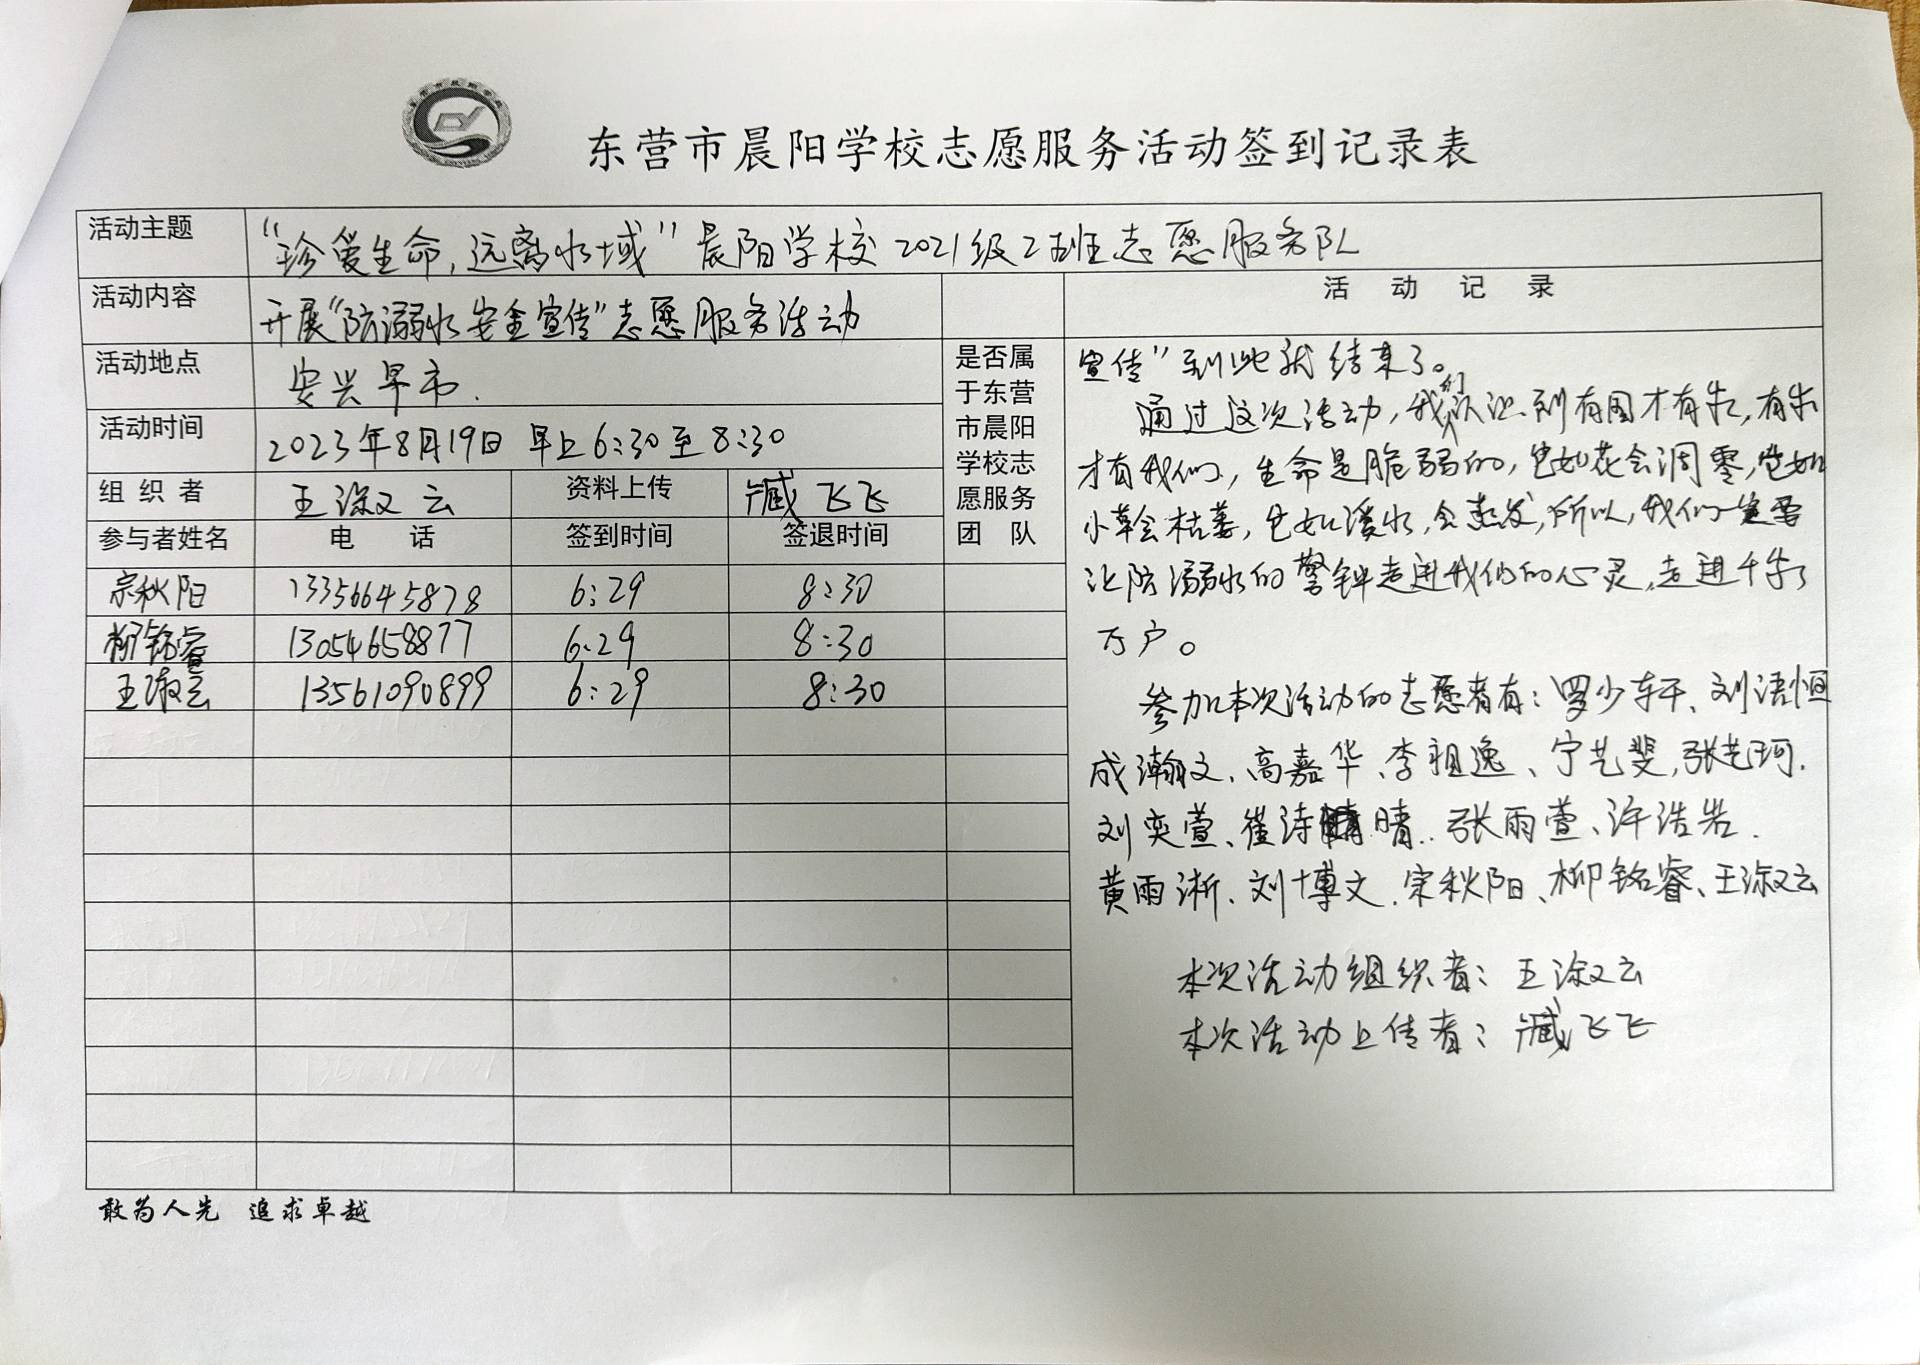 东营市晨阳学校志愿服务活动签到记录表
活动主题 “珍爱生命，远离水域”晨阳学校2021级2班志愿服务队
活动内容 开展“防溺水安全宣传”志愿服务活动
活动记录
活动地点 安兴早市.
活动时间 2023年8月19日 早上6:30至8:30
组织者 王淑云 资料上传 臧飞飞
参与者姓名 电话 签到时间 签退时间
是否属
于东营
市晨阳
学校志
愿服务
团队
宗秋阳 13356645878 6:29 8:30
柳铭睿 13054658877 6:29 8:30
王淑云 13561090899 6:29 8:30
宣传”到此就结束了。
通过这次活动，我们认识到有国才有家，有家
才有我们，生命是脆弱的，它如花会凋零，它如
小草会枯萎，它如溪水，会蒸发，所以，我们一定要
让防溺水的警钟走进我们的心灵，走进千家
万户。
参加本次活动的志愿者有：罗少轩、刘语恒
成瀚文、高嘉华、李祖逸、宁艺斐，张艺珂.
刘奕萱、崔诗晴.张雨萱、许浩岩.
黄雨淅、刘博文.宗秋阳、柳铭睿、王淑云
本次活动组织者：王淑云
本次活动上传者：臧飞飞
敢为人先 追求卓越